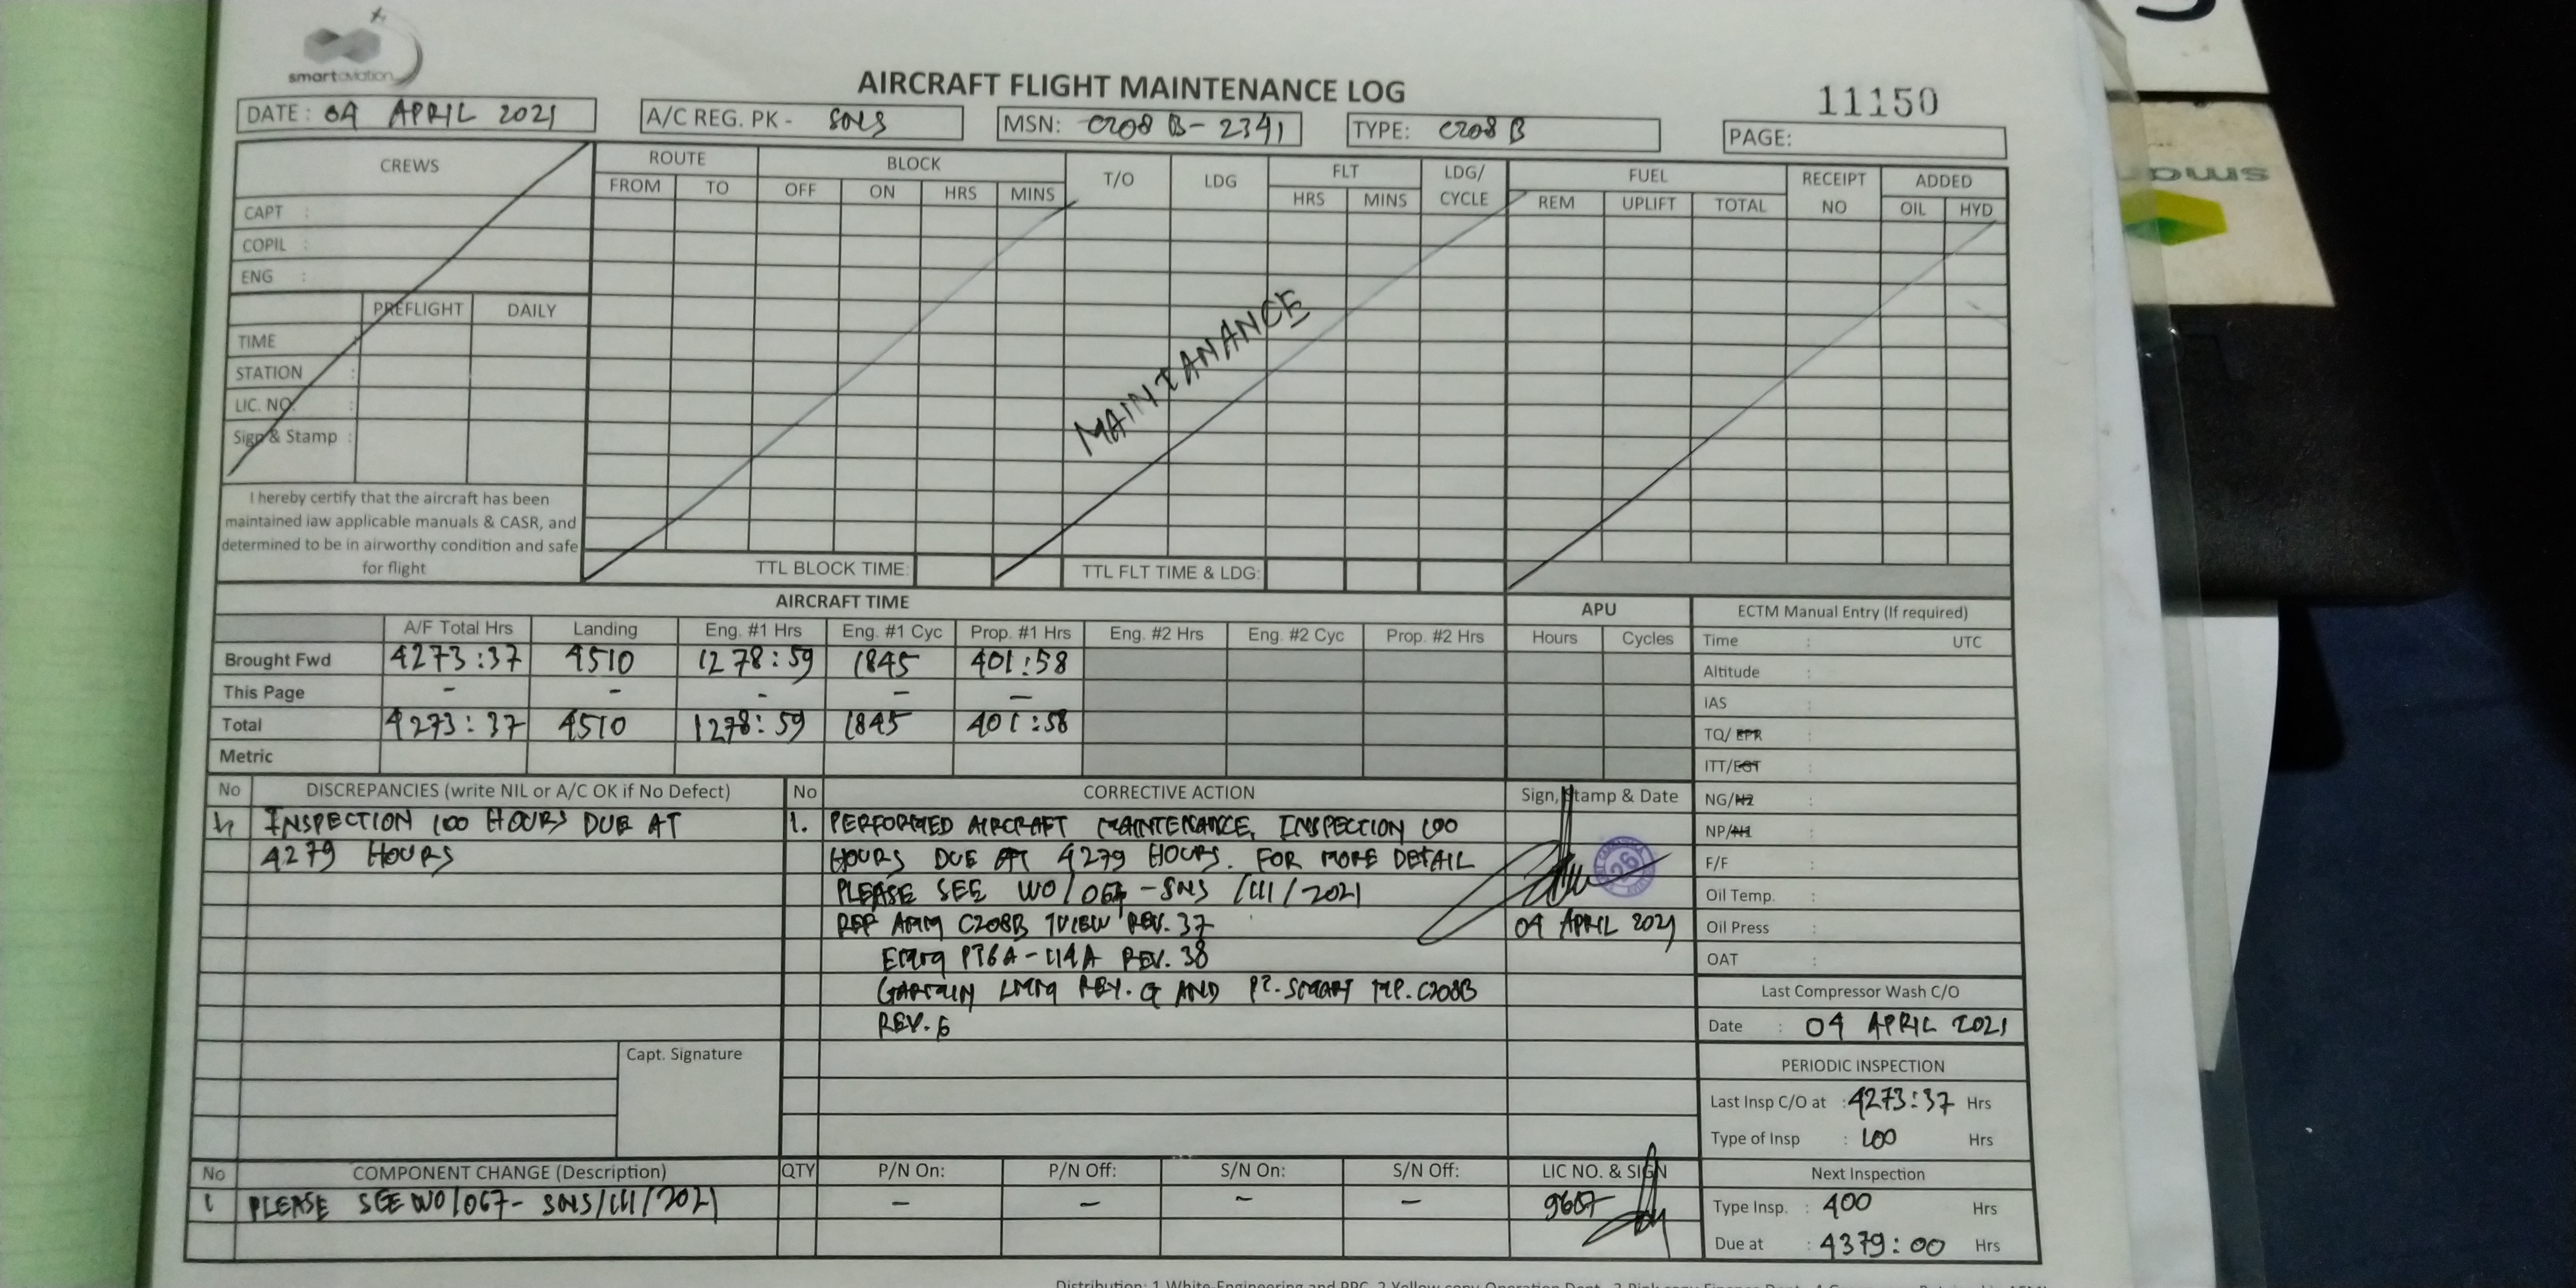 smartaviation
AIRCRAFT FLIGHT MAINTENANCE LOG
11150
DATE : 04 APRIL 2021
A/C REG. PK - SNS
MSN: C208 B - 2341
TYPE: C208 B
PAGE:
CREWS
ROUTE
BLOCK
T/O
LDG
FLT
LDG/ CYCLE
FUEL
RECEIPT NO
ADDED
FROM TO OFF ON HRS MINS HRS MINS REM UPLIFT TOTAL OIL HYD
CAPT :
COPIL :
ENG :
PREFLIGHT DAILY
TIME :
STATION :
LIC. NO. :
Sign & Stamp :
MAINTANANCE
I hereby certify that the aircraft has been
maintained iaw applicable manuals & CASR, and
determined to be in airworthy condition and safe
for flight
TTL BLOCK TIME:
TTL FLT TIME & LDG:
AIRCRAFT TIME
APU
ECTM Manual Entry (If required)
A/F Total Hrs Landing Eng. #1 Hrs Eng. #1 Cyc Prop. #1 Hrs Eng. #2 Hrs Eng. #2 Cyc Prop. #2 Hrs Hours Cycles
Brought Fwd 4273:37 4510 1278:59 1845 401:58
This Page - - - - -
Total 4273:37 4510 1278:59 1845 401:58
Metric
Time : UTC
Altitude :
IAS :
TQ/ EPR :
ITT/EGT :
NG/N2 :
NP/N1 :
F/F :
Oil Temp. :
Oil Press :
OAT :
No DISCREPANCIES (write NIL or A/C OK if No Defect)
INSPECTION 100 HOURS DUE AT
4279 HOURS
Capt. Signature
No CORRECTIVE ACTION
1. PERFORMED AIRCRAFT MAINTENANCE, INSPECTION 100
HOURS DUE AT 4279 HOURS. FOR MORE DETAIL
PLEASE SEE WO/067-SNS/III/2021
REF AMM C208B 1VIEW REV.37
EMM PT6A-114A REV. 38
GARMIN LMM REV. G AND PT. SMART MP. C208B
REV. 6
Sign, Stamp & Date
26
04 APRIL 2021
Last Compressor Wash C/O
Date : 04 APRIL 2021
PERIODIC INSPECTION
Last Insp C/O at : 4273:37 Hrs
Type of Insp : 100 Hrs
Next Inspection
Type Insp. : 400 Hrs
Due at : 4379:00 Hrs
No COMPONENT CHANGE (Description) QTY P/N On: P/N Off: S/N On: S/N Off: LIC NO. & SIGN
1 PLEASE SEE WO/067-SNS/III/2021 - - - -